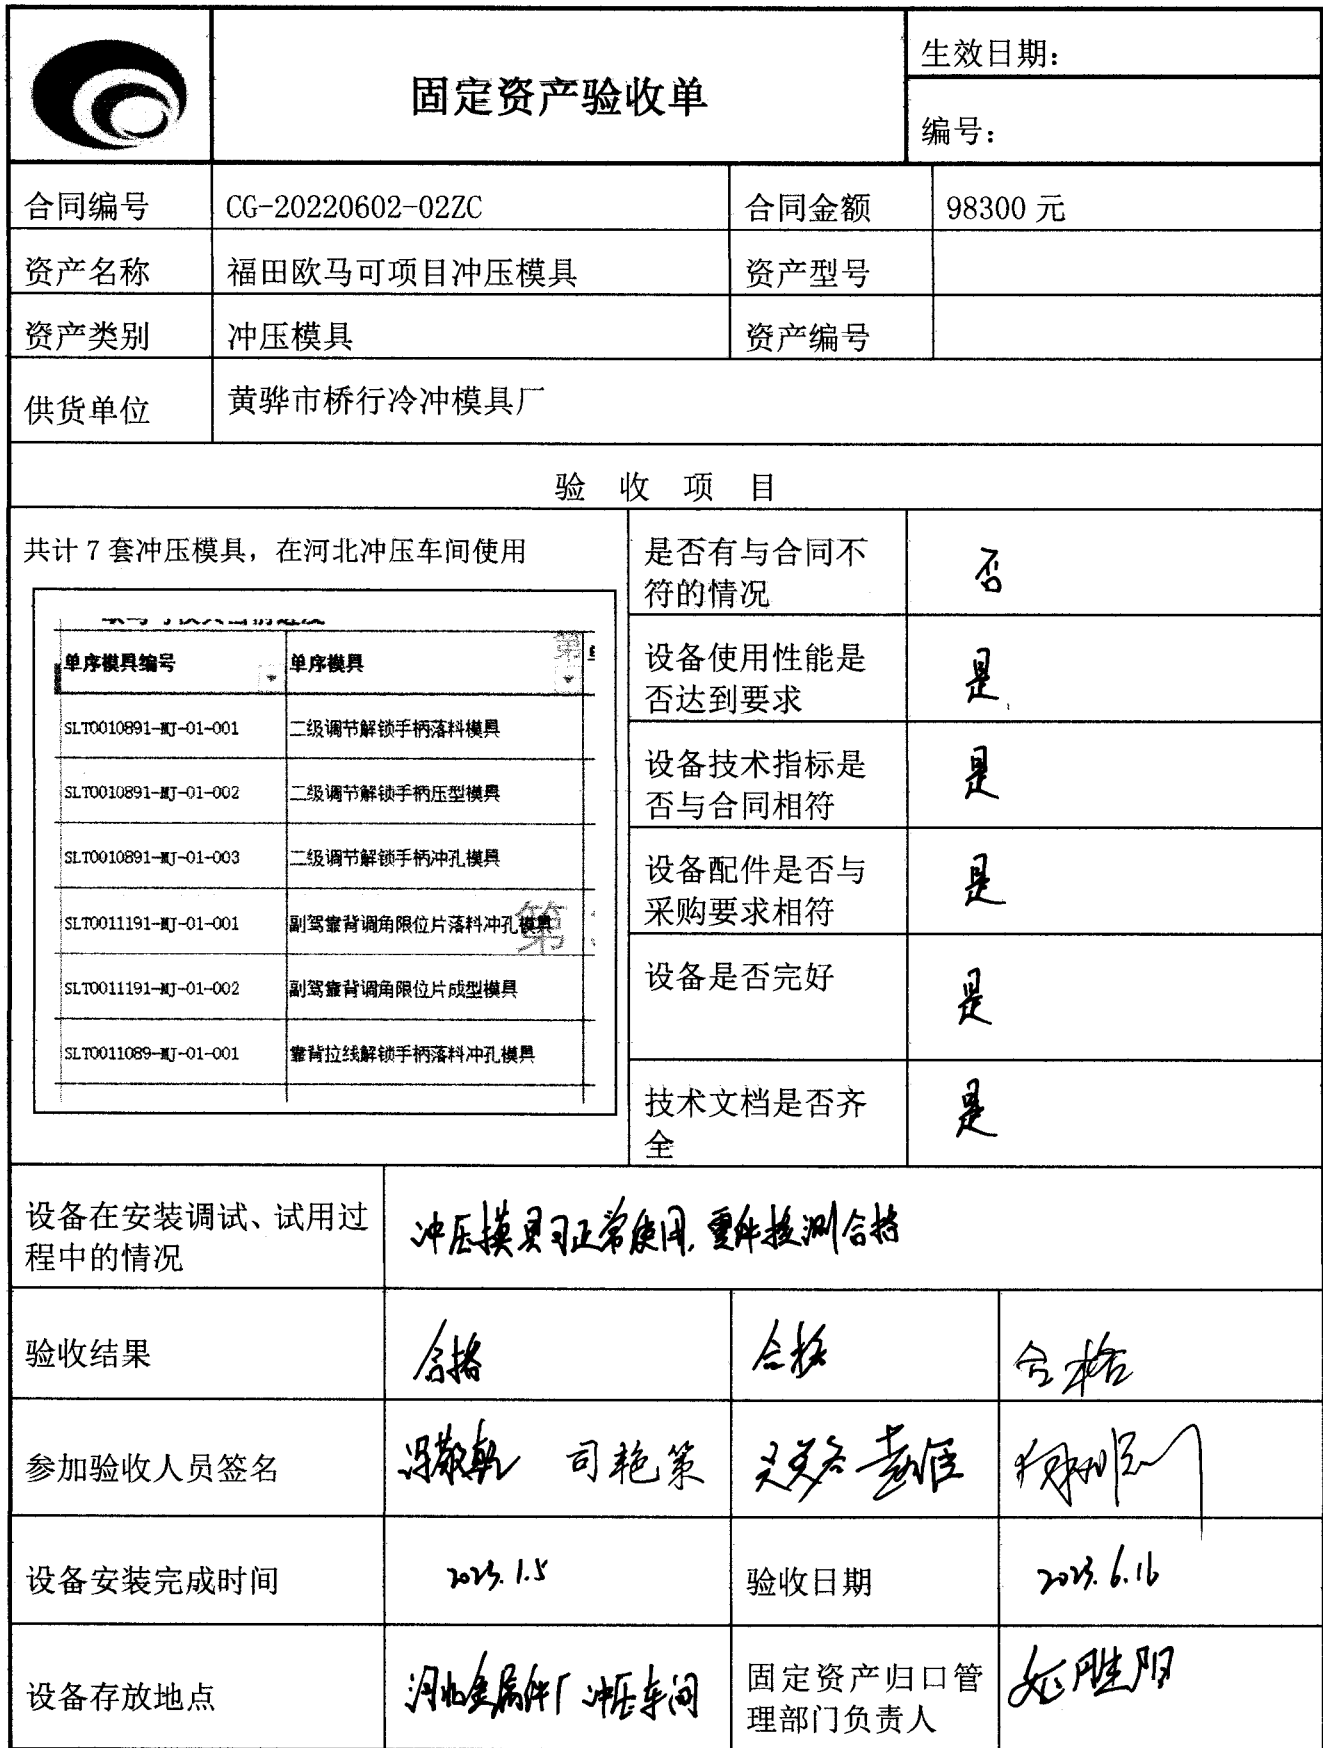 固定资产验收单
生效日期：
编号：
合同编号
CG-20220602-02ZC
合同金额
98300 元
资产名称
福田欧马可项目冲压模具
资产型号
资产类别
冲压模具
资产编号
供货单位
黄骅市桥行冷冲模具厂
验 收 项 目
共计 7 套冲压模具，在河北冲压车间使用
单序模具编号
单序模具
第
SLT0010891-MJ-01-001
二级调节解锁手柄落料模具
SLT0010891-MJ-01-002
二级调节解锁手柄压型模具
SLT0010891-MJ-01-003
二级调节解锁手柄冲孔模具
SLT0011191-MJ-01-001
副驾靠背调角限位片落料冲孔模具
第
SLT0011191-MJ-01-002
副驾靠背调角限位片成型模具
SLT0011089-MJ-01-001
靠背拉线解锁手柄落料冲孔模具
是否有与合同不
符的情况
否
设备使用性能是
否达到要求
是
设备技术指标是
否与合同相符
是
设备配件是否与
采购要求相符
是
设备是否完好
是
技术文档是否齐
全
是
设备在安装调试、试用过
程中的情况
冲压模具可正常使用，零件检测合格
验收结果
合格
合格
合格
参加验收人员签名
冯敬乾 司艳策
设备安装完成时间
2023.1.5
验收日期
2023.6.16
设备存放地点
河北金属件厂冲压车间
固定资产归口管
理部门负责人